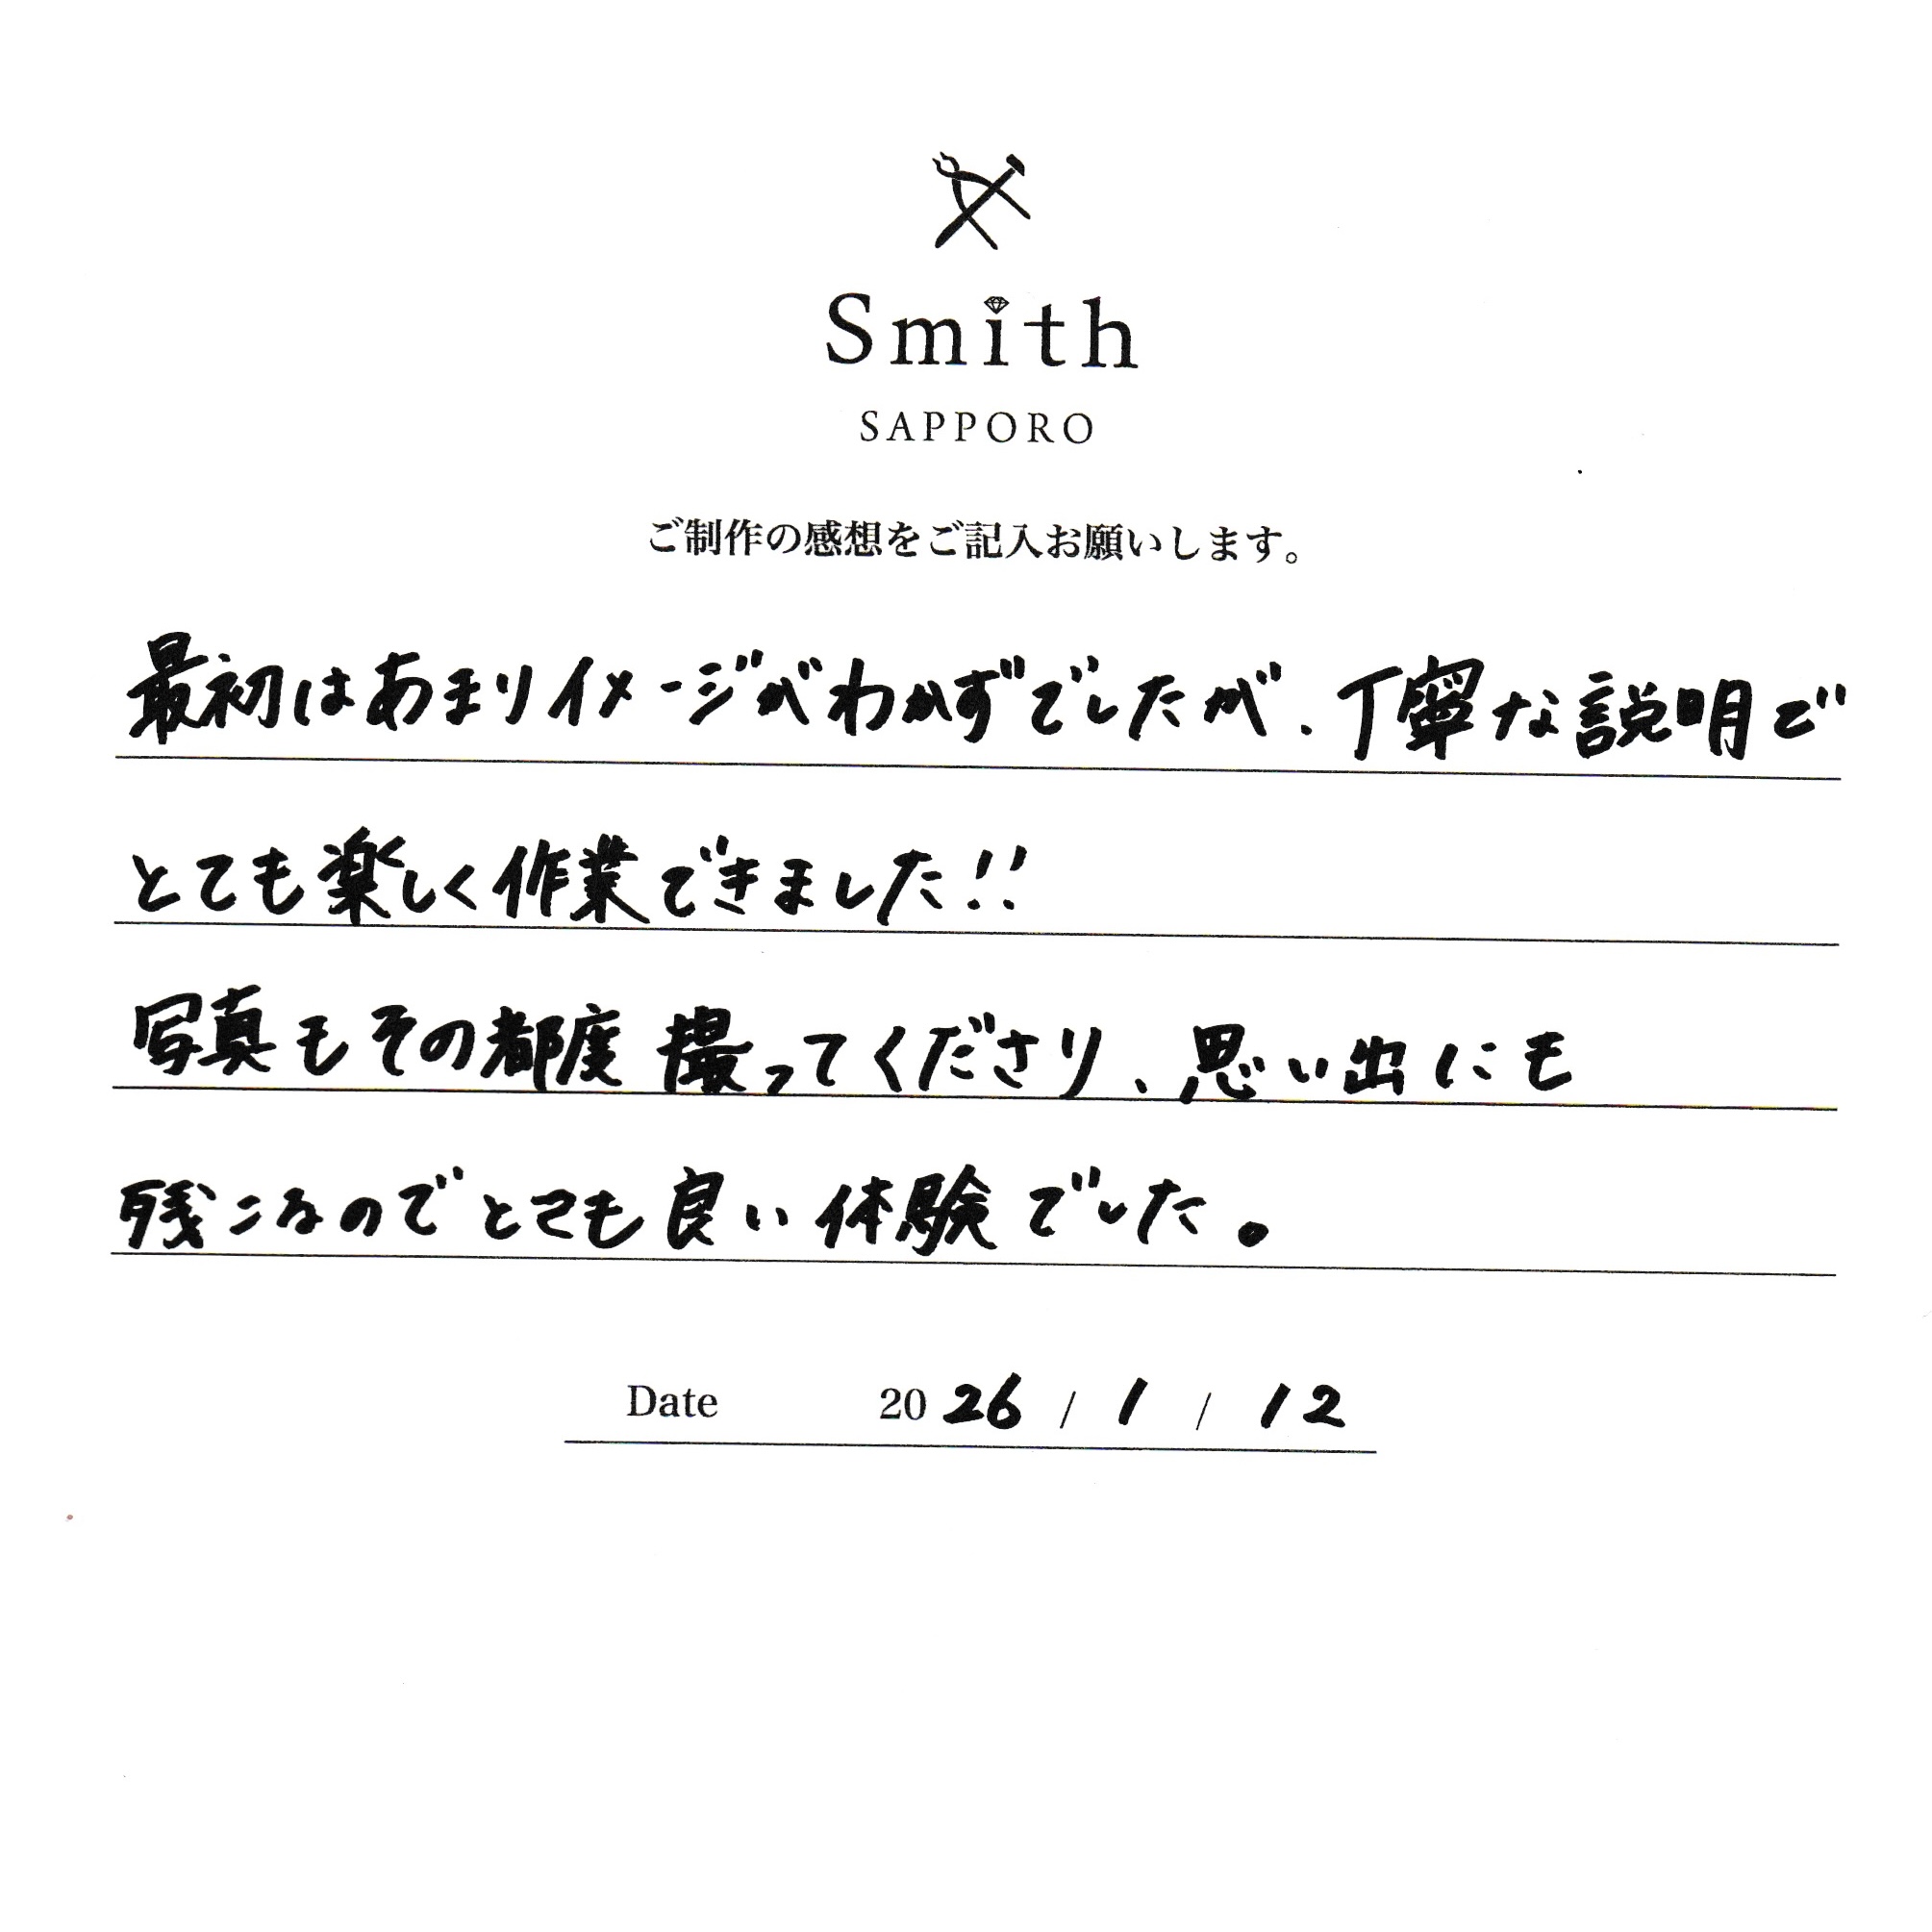 Smith
SAPPORO
ご制作の感想をご記入お願いします。
最初はあまりイメージがわかずでしたが、丁寧な説明で
とても楽しく作業できました!!
写真もその都度撮ってくださり、思い出にも
残こなのでとても良い体験でした。
Date 2026 / 1 / 12